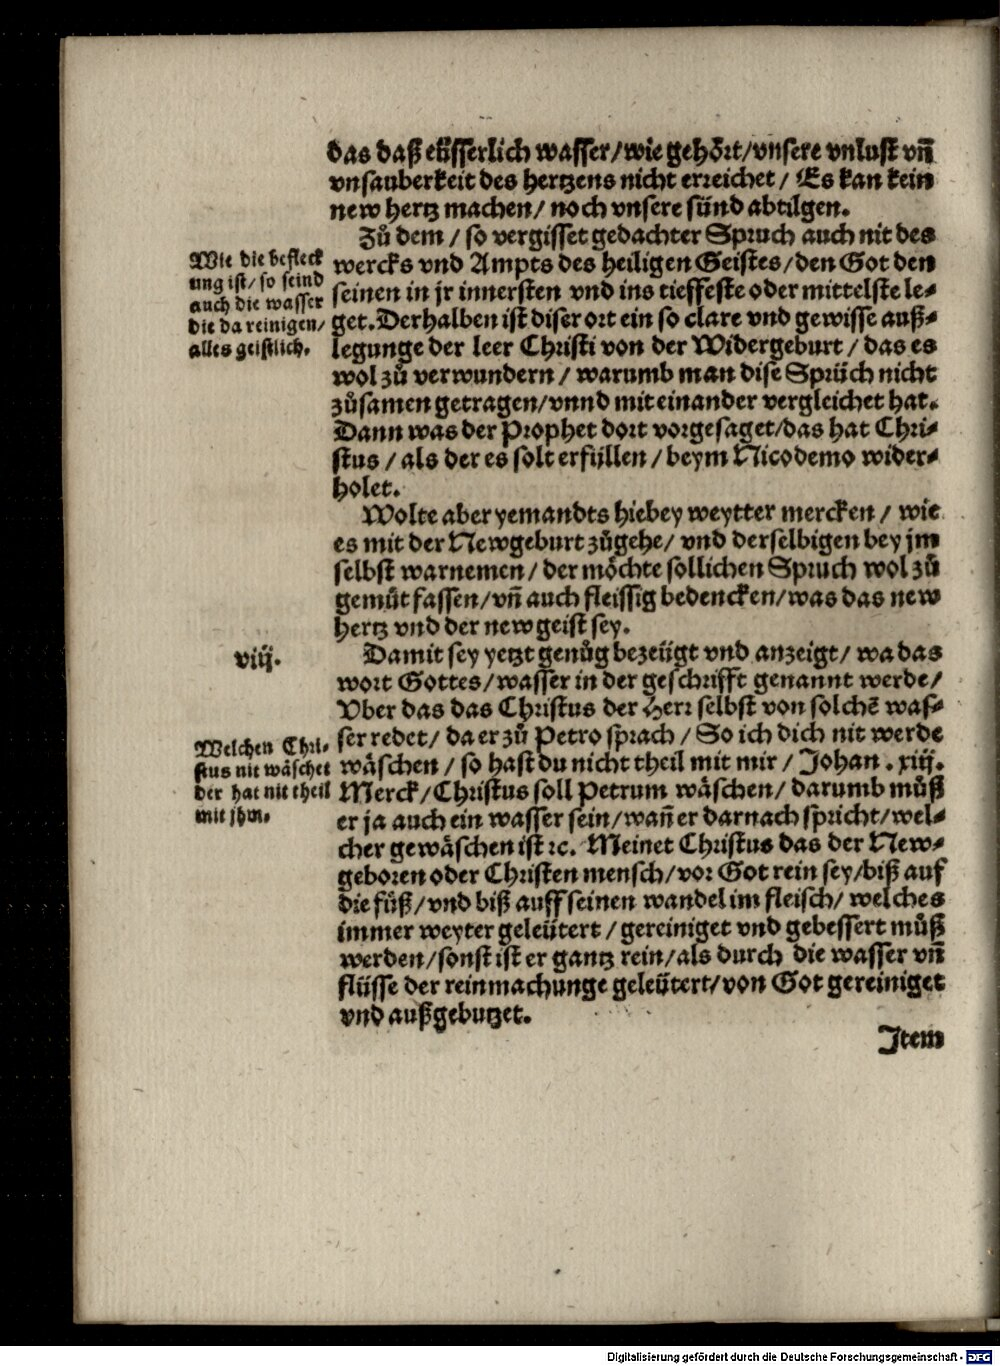 das daß eüsserlich wasser/wie gehört/vnsere vnlust vñ
vnsauberkeit des hertzens nicht erreichet/ Es kan kein
new hertz machen/ noch vnsere sünd abtilgen.
Zů dem/ so vergisset gedachter Spruch auch nit des
wercks vnd Ampts des heiligen Geistes/den Got den
seinen in jr innersten vnd ins tieffeste oder mittelste le-
get.Derhalben ist diser ort ein so clare vnd gewisse auß-
legunge der leer Christi von der Widergeburt/ das es
wol zů verwundern/ warumb man dise Sprüch nicht
zůsamen getragen/vnnd mit einander vergleichet hat.
Dann was der Prophet dort vorgesaget/das hat Chri-
stus/ als der es solt erfüllen/ beym Nicodemo wider-
holet.
Wie die befleck
ung ist/ so seind
auch die wasser
die da reinigen/
alles geistlich.
Wolte aber yemandts hiebey weytter mercken/ wie
es mit der Newgeburt zůgehe/ vnd derselbigen bey jm
selbst warnemen/ der möchte sollichen Spruch wol zů
gemůt fassen/vñ auch fleissig bedencken/was das new
hertz vnd der new geist sey.
viij.
Damit sey yetzt genůg bezeügt vnd anzeigt/ wa das
wort Gottes/wasser in der geschrifft genannt werde/
Vber das das Christus der Herr selbst von solchē was-
ser redet/ da er zů Petro sprach/ So ich dich nit werde
wäschen/ so hast du nicht theil mit mir/ Johan. xiij.
Merck/Christus soll Petrum wäschen/ darumb můß
er ja auch ein wasser sein/wañ er darnach spricht/wel-
cher gewäschen ist ꝛc. Meinet Christus das der New-
geboren oder Christen mensch/vor Got rein sey/biß auf
die füß/vnd biß auff seinen wandel im fleisch/ welches
immer weyter geleütert/ gereiniget vnd gebessert můß
werden/sonst ist er gantz rein/als durch die wasser vñ
flüsse der reinmachunge geleütert/von Got gereiniget
vnd außgebutzet.
Welchen Chri-
stus nit wäschet
der hat nit theil
mit jhm.
Item
Digitalisierung gefördert durch die Deutsche Forschungsgemeinschaft - DFG